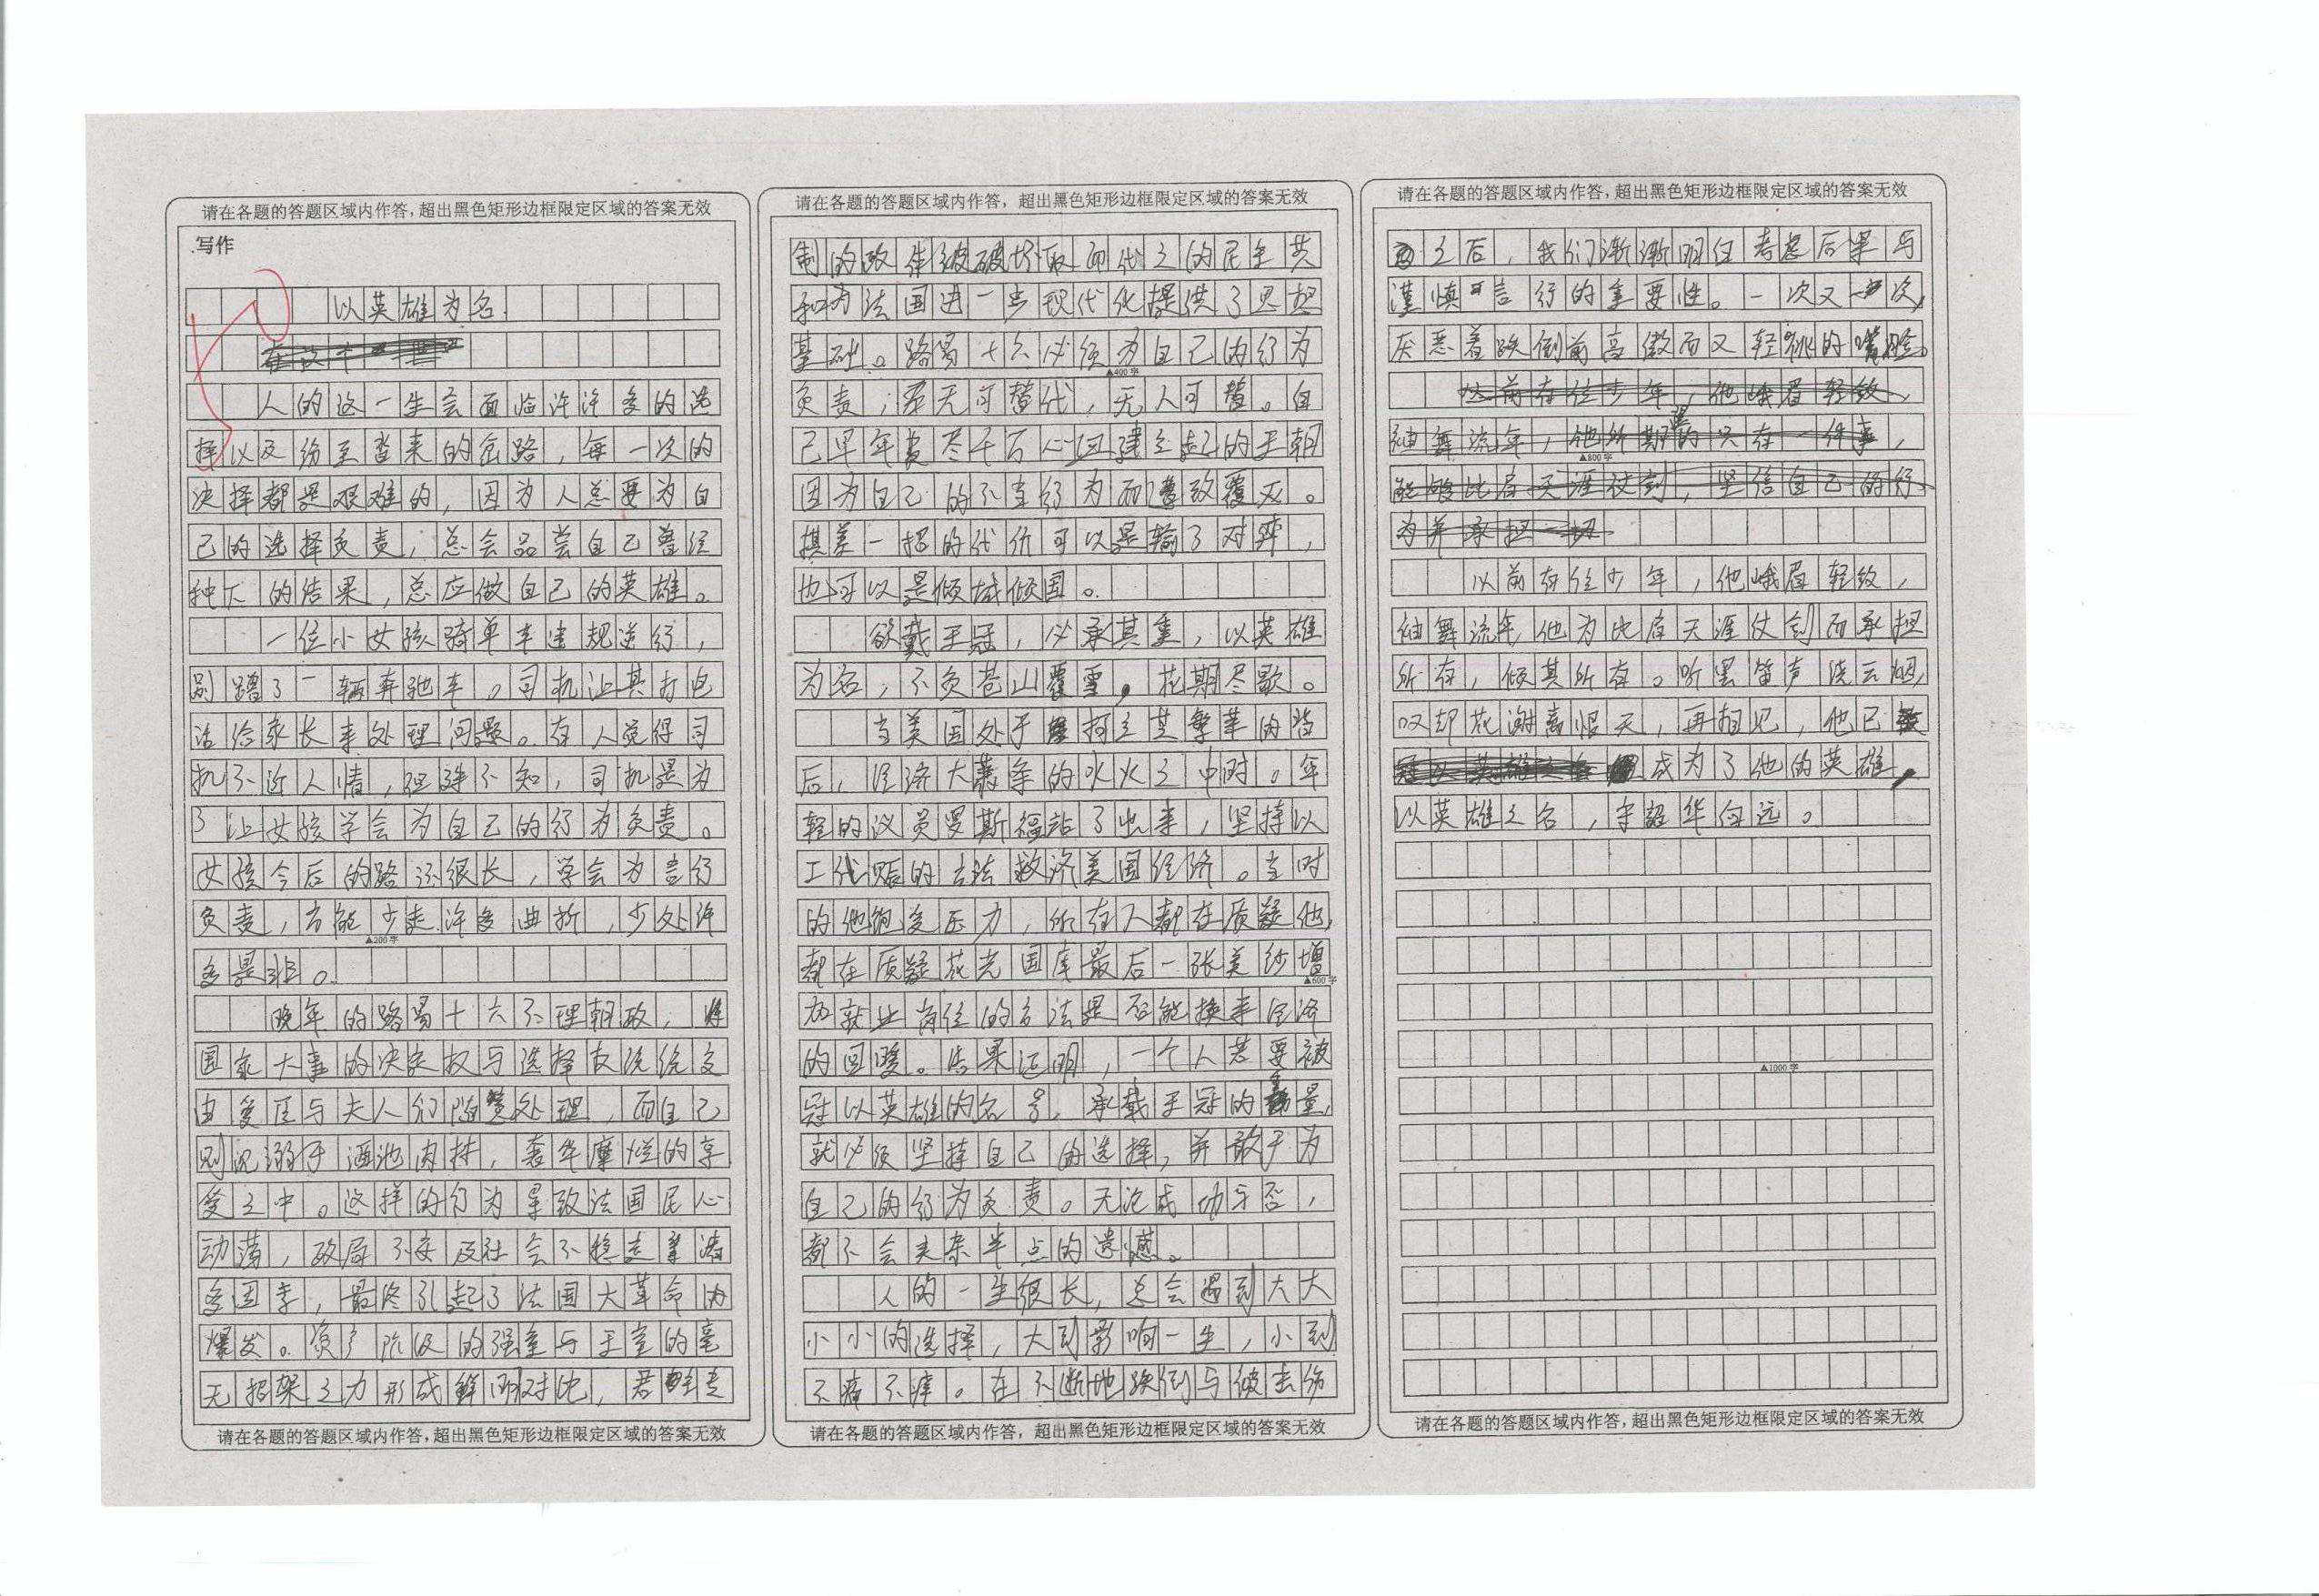 请在各题的答题区域内作答，超出黑色矩形边框限定区域的答案无效
写作
以英雄为名
人的这一生会面临许许多多的选
择以及纷至沓来的岔路，每一次的
决择都是艰难的，因为人总要为自
己的选择负责，总会品尝自己曾经
种下的结果，总应做自己的英雄。
一位小女孩骑单车违规逆行，
剐蹭了一辆奔驰车。司机让其打电
话给家长来处理问题。有人觉得司
机不近人情，但殊不知，司机是为
了让女孩学会为自己的行为负责。
女孩今后的路还很长，学会为言行
负责，方能少走许多曲折，少处许
▲200字
多是非。
晚年的路易十六不理朝政，将
国家大事的决定权与选择权统统交
由爱臣与夫人们随意处理，而自己
则沉溺于酒池肉林，奢华糜烂的享
受之中。这样的行为导致法国民心
动荡，政局不安及社会不稳定等诸
多因素，最终引起了法国大革命的
爆发。资产阶级的强势与王室的毫
无招架之力形成鲜明对比，君主专
请在各题的答题区域内作答，超出黑色矩形边框限定区域的答案无效
请在各题的答题区域内作答，超出黑色矩形边框限定区域的答案无效
制的政体被破坏取而代之的民主共
和为法国进一步现代化提供了思想
基础。路易十六必须为自己的行为
▲400字
负责，罪无可替代，无人可替。自
己早年费尽千万心血建立起的王朝
因为自己的不当行为而遭致覆灭。
棋差一招的代价可以是输了对弈，
也可以是倾城倾国。
欲戴王冠，必承其重，以英雄
为名，不负苍山覆雪，花期尽歌。
当美国处于柯立芝繁荣的背
后，经济大萧条的水火之中时。年
轻的议员罗斯福站了出来，坚持以
工代赈的方法救济美国经济。当时
的他饱受压力，所有人都在质疑他，
都在质疑花光国库最后一张美钞增
▲600字
加就业岗位的方法是否能换来经济
的回暖。结果证明，一个人若要被
冠以英雄的名号，承载王冠的重量，
就必须坚持自己的选择，并敢于为
自己的行为负责。无论成功与否，
都不会夹杂半点的遗憾。
人的一生很长，总会遇到大大
小小的选择，大到影响一生，小到
不痛不痒。在不断地跌倒与彼去伤
请在各题的答题区域内作答，超出黑色矩形边框限定区域的答案无效
请在各题的答题区域内作答，超出黑色矩形边框限定区域的答案无效
之后，我们渐渐明白考虑后果与
谨慎言行的重要性。一次又一次，
厌恶着跌倒前高傲而又轻佻的嘴脸。
以前有位少年，他峨眉轻敛，
袖舞流年，他所期望的只有一件事，
▲800字
能够比肩天涯仗剑，坚信自己的行
为并承担一切
以前有位少年，他峨眉轻敛，
袖舞流年，他为比肩天涯仗剑而承担
所有，倾其所有。听罢笛声绕云烟，
叹却花谢离恨天，再相见，他已
成为了他的英雄，
以英雄之名，守韶华向远。
▲1000字
请在各题的答题区域内作答，超出黑色矩形边框限定区域的答案无效